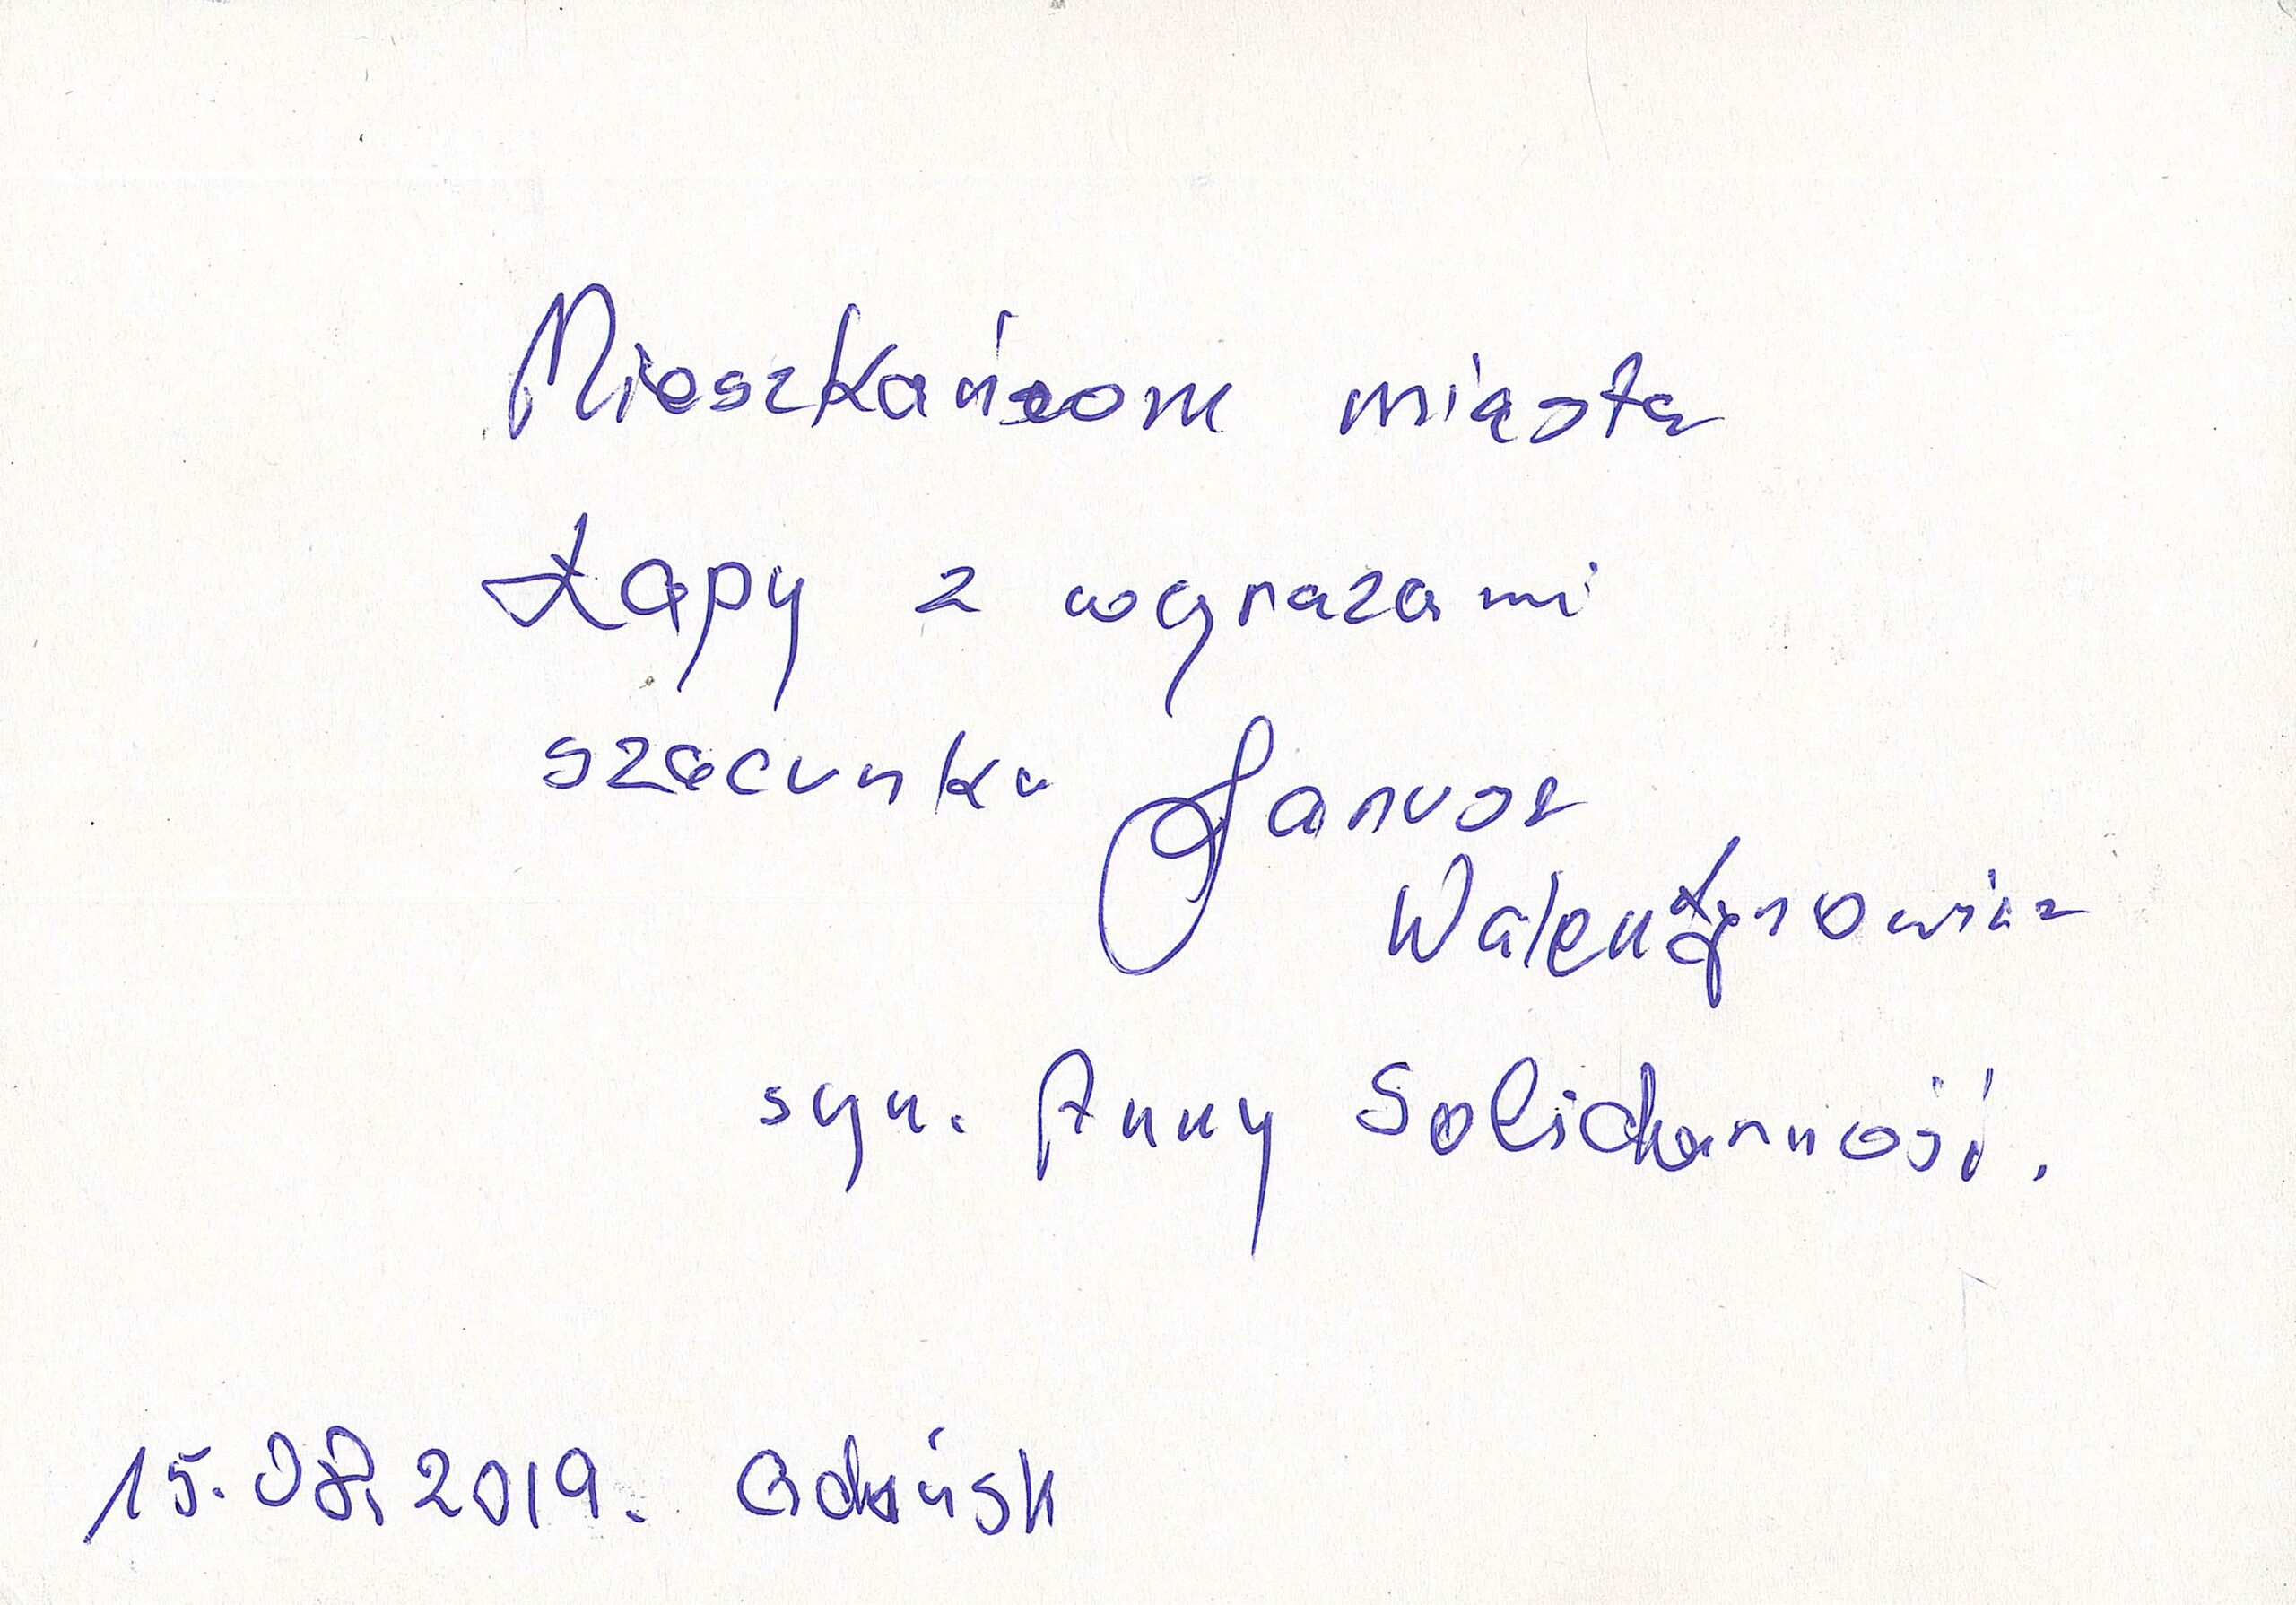 Mieszkańcom miasta
Łapy z wyrazami
szacunku Janusz
Walentynowicz
syn. Anny Solidarność.
15.08.2019. Gdańsk